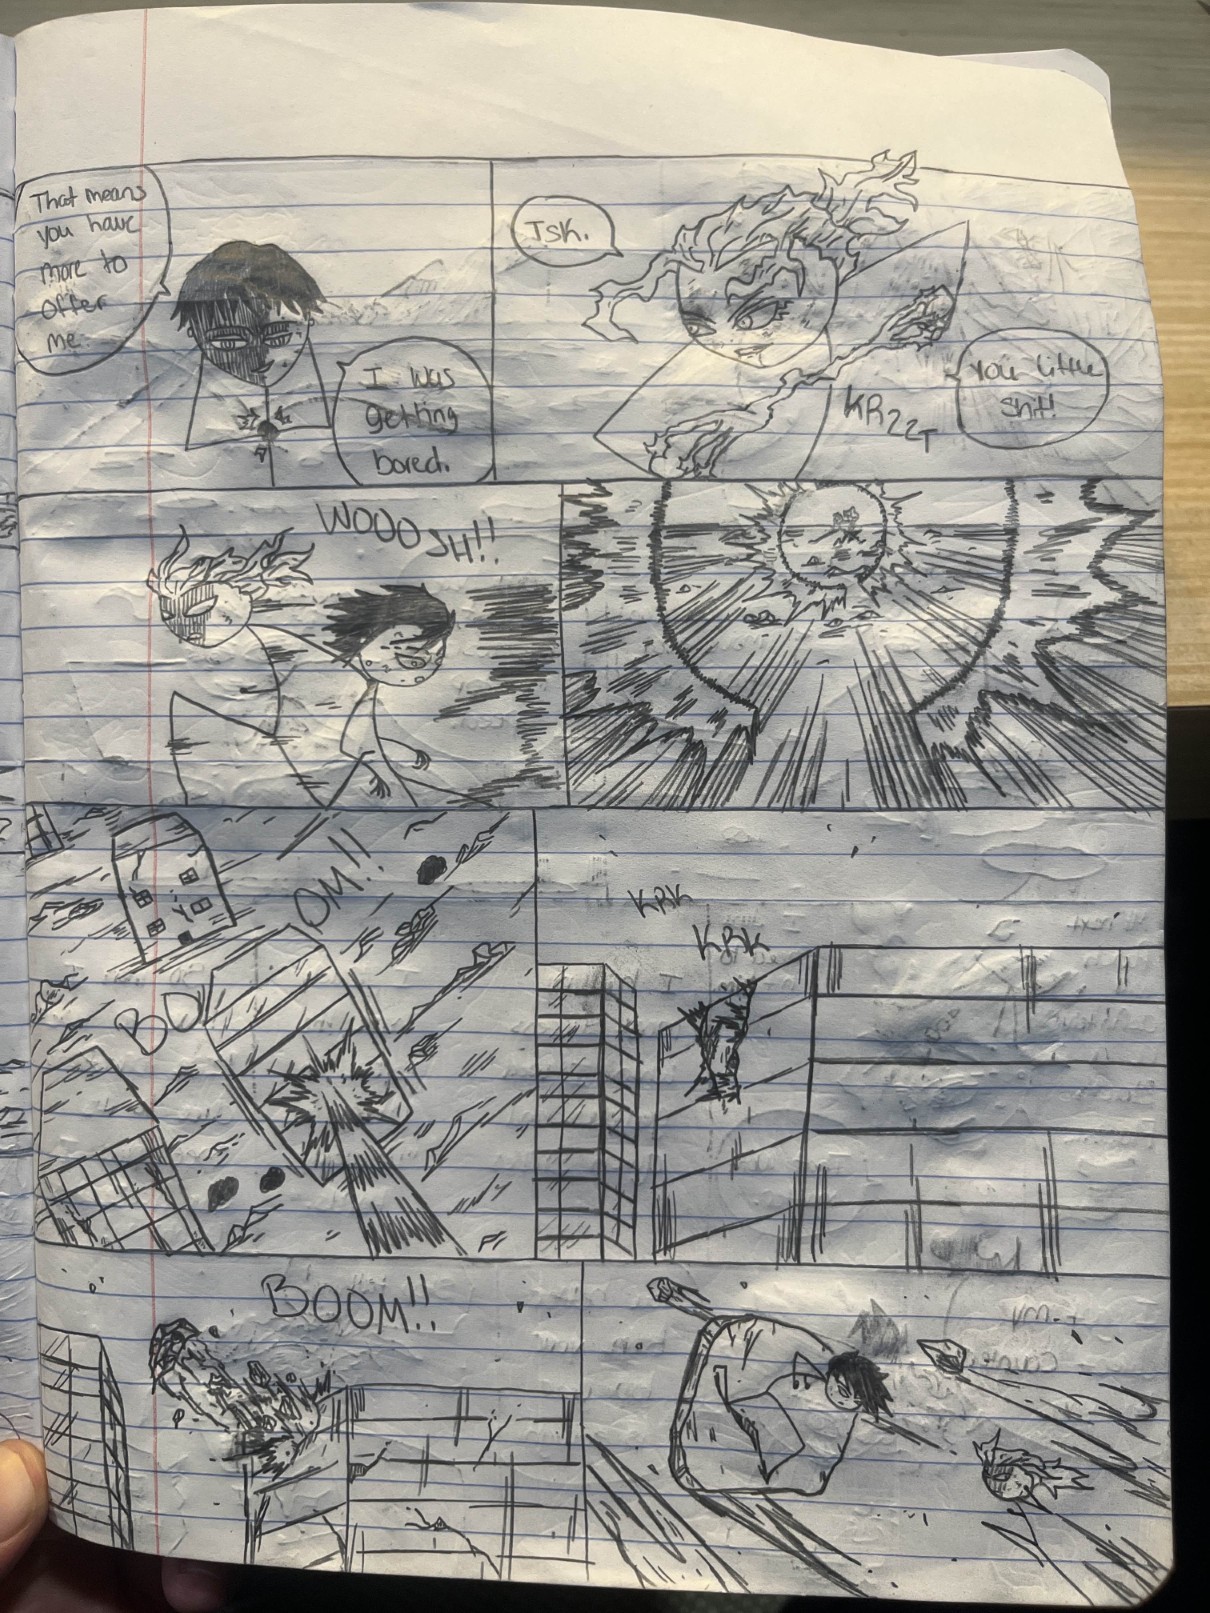 That means
you have
more to
offer
me.
I was
getting
bored.
Tsk.
You little
shit!
KRZZT
WOOOSH!!
BOOM!!
KRK
KRK
BOOM!!